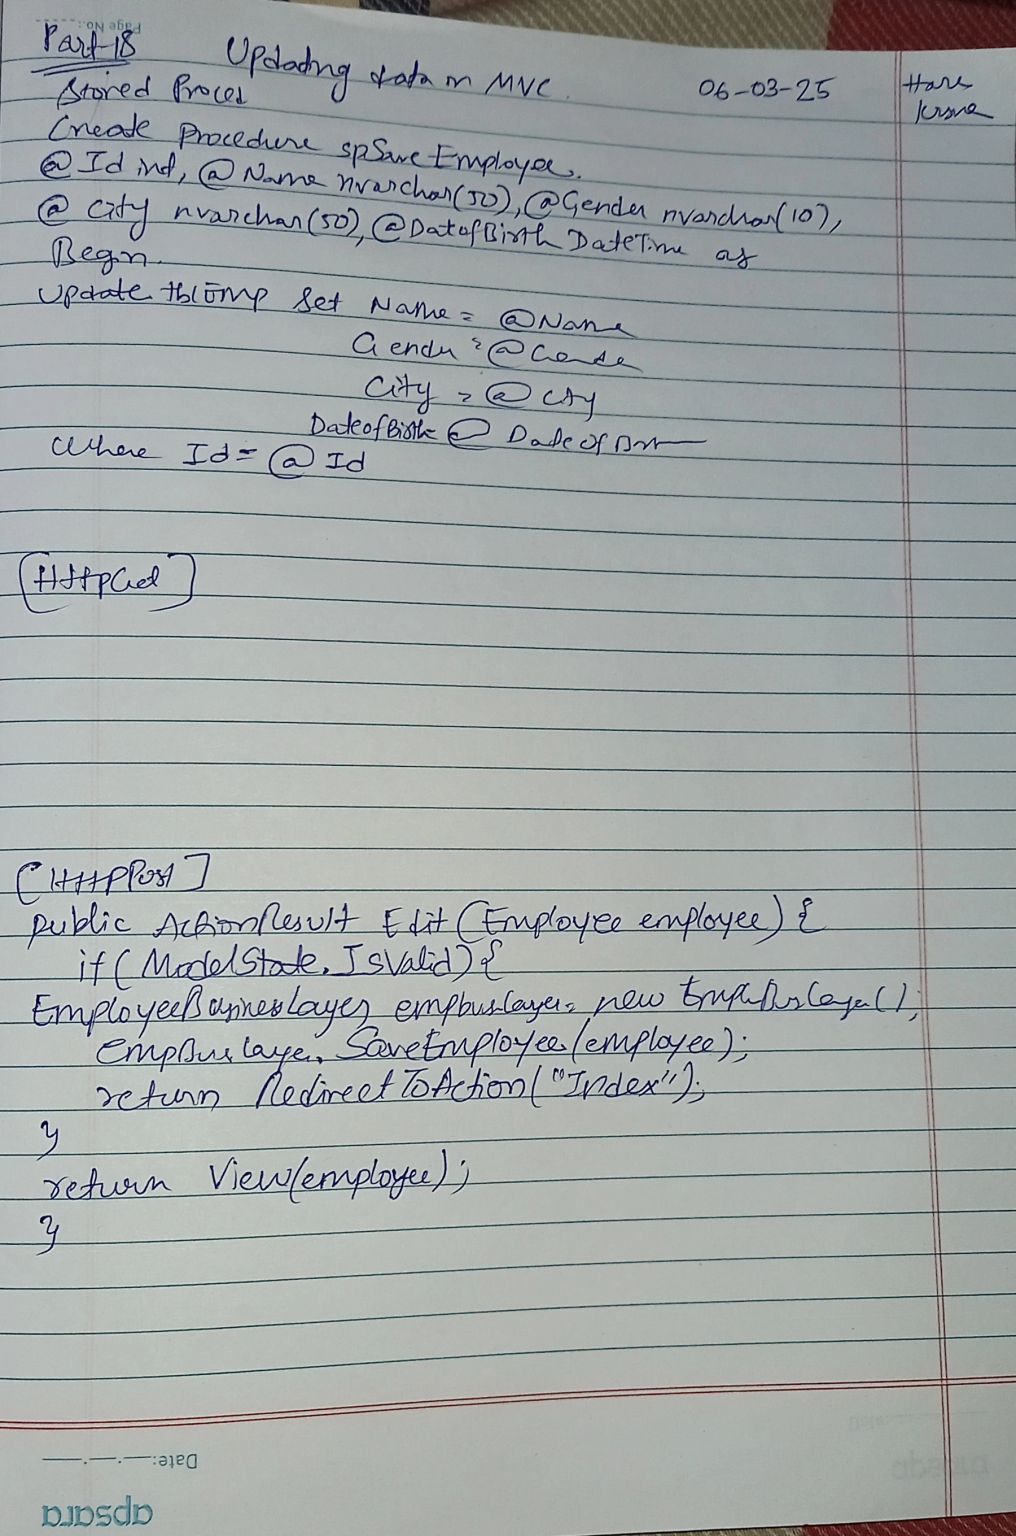 Page No.:
Part-18 Updating data in MVC. 06-03-25 Hare
Krsna
Stored Proces
Create Procedure spSaveEmployee.
@ Id int, @ Name nvarchar(50), @Gender nvarchar(10),
@ city nvarchar(50), @DatofBirth DateTime as
Begin.
Update tblEmp Set Name = @Name
Gender = @Gende
City = @ City
DateofBirth @ DateOfBirth
Where Id = @ Id
[HttpGet]
[HttpPost]
public ActionResult Edit (Employee employee) {
if ( ModelState.IsValid) {
EmployeeBusinesLayer empbuslayer = new EmpBusLayer();
empBusLayer. SaveEmployee(employee);
return RedirectToAction("Index");
}
return View(employee);
}
Date:
apsara